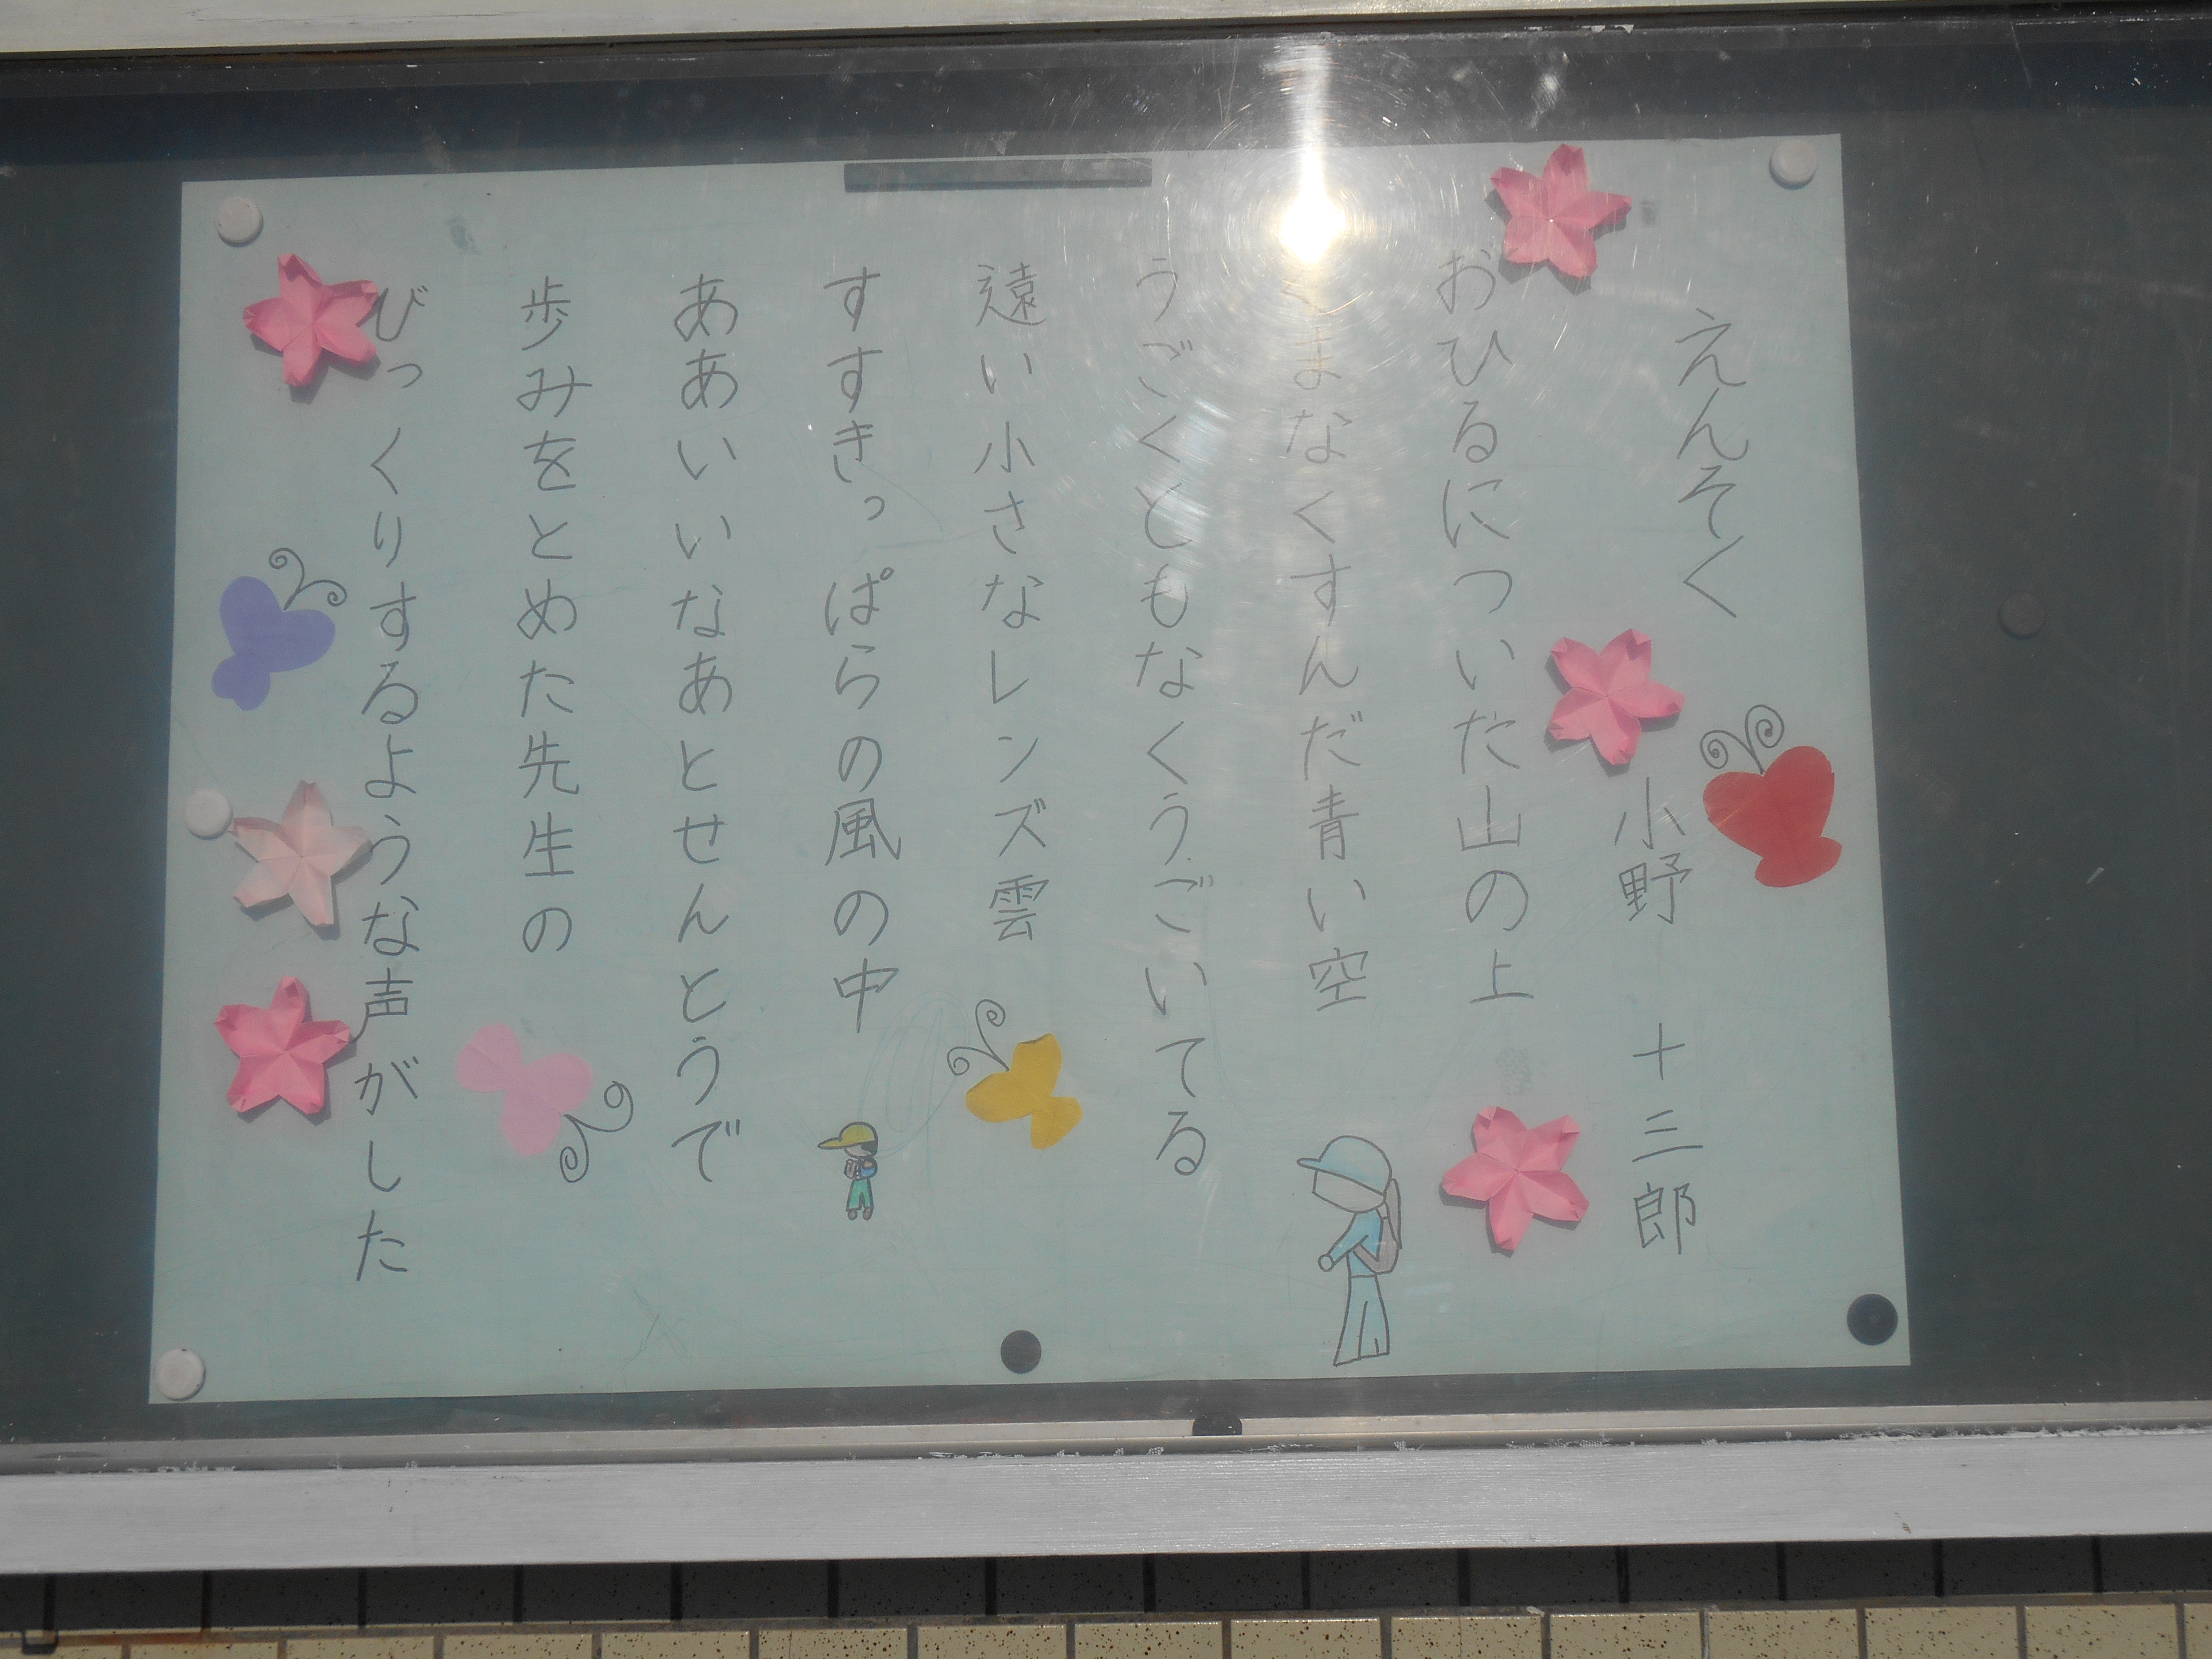 えんそく
小野 十三郎
おひるについた山の上
まなくすんだ青い空
うごくともなくうごいてる
遠い小さなレンズ雲
すすきっぱらの風の中
ああいいなあとせんとうで
歩みをとめた先生の
びっくりするような声がした